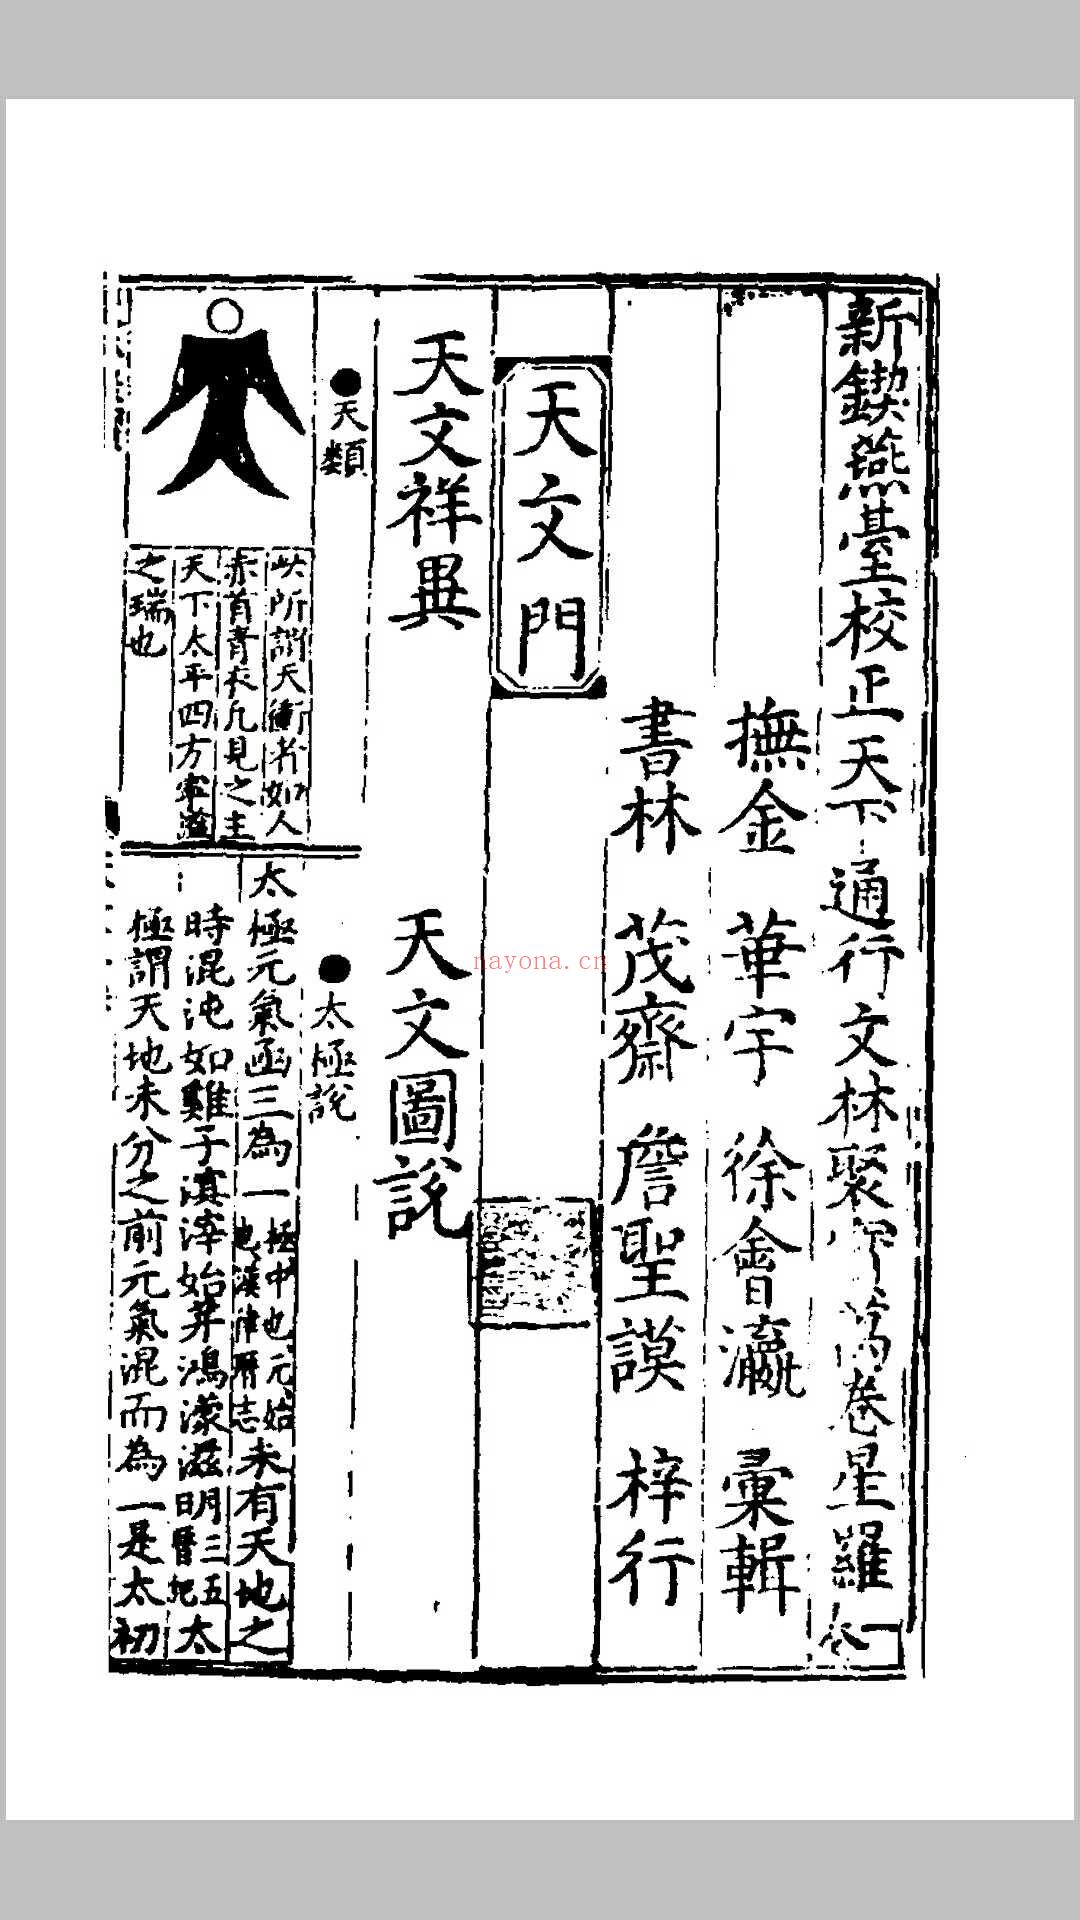 新鍥燕臺校正天下通行文林聚寳萬卷星羅卷一
撫金 華宇 徐會瀛 彙輯
書林 茂齋 詹聖謨 梓行
天文門
天文祥異
天文圖說
●天類
此所謂天衝者如人
赤首青衣凡見之主
天下太平四方寧謐
之瑞也
●太極說
太極元氣函三為一極中也元始也漢律曆志未有天地之
時混沌如雞子溟涬始芽鴻濛滋明三五曆紀太
極謂天地未分之前元氣混而為一是太初
nayona.cn